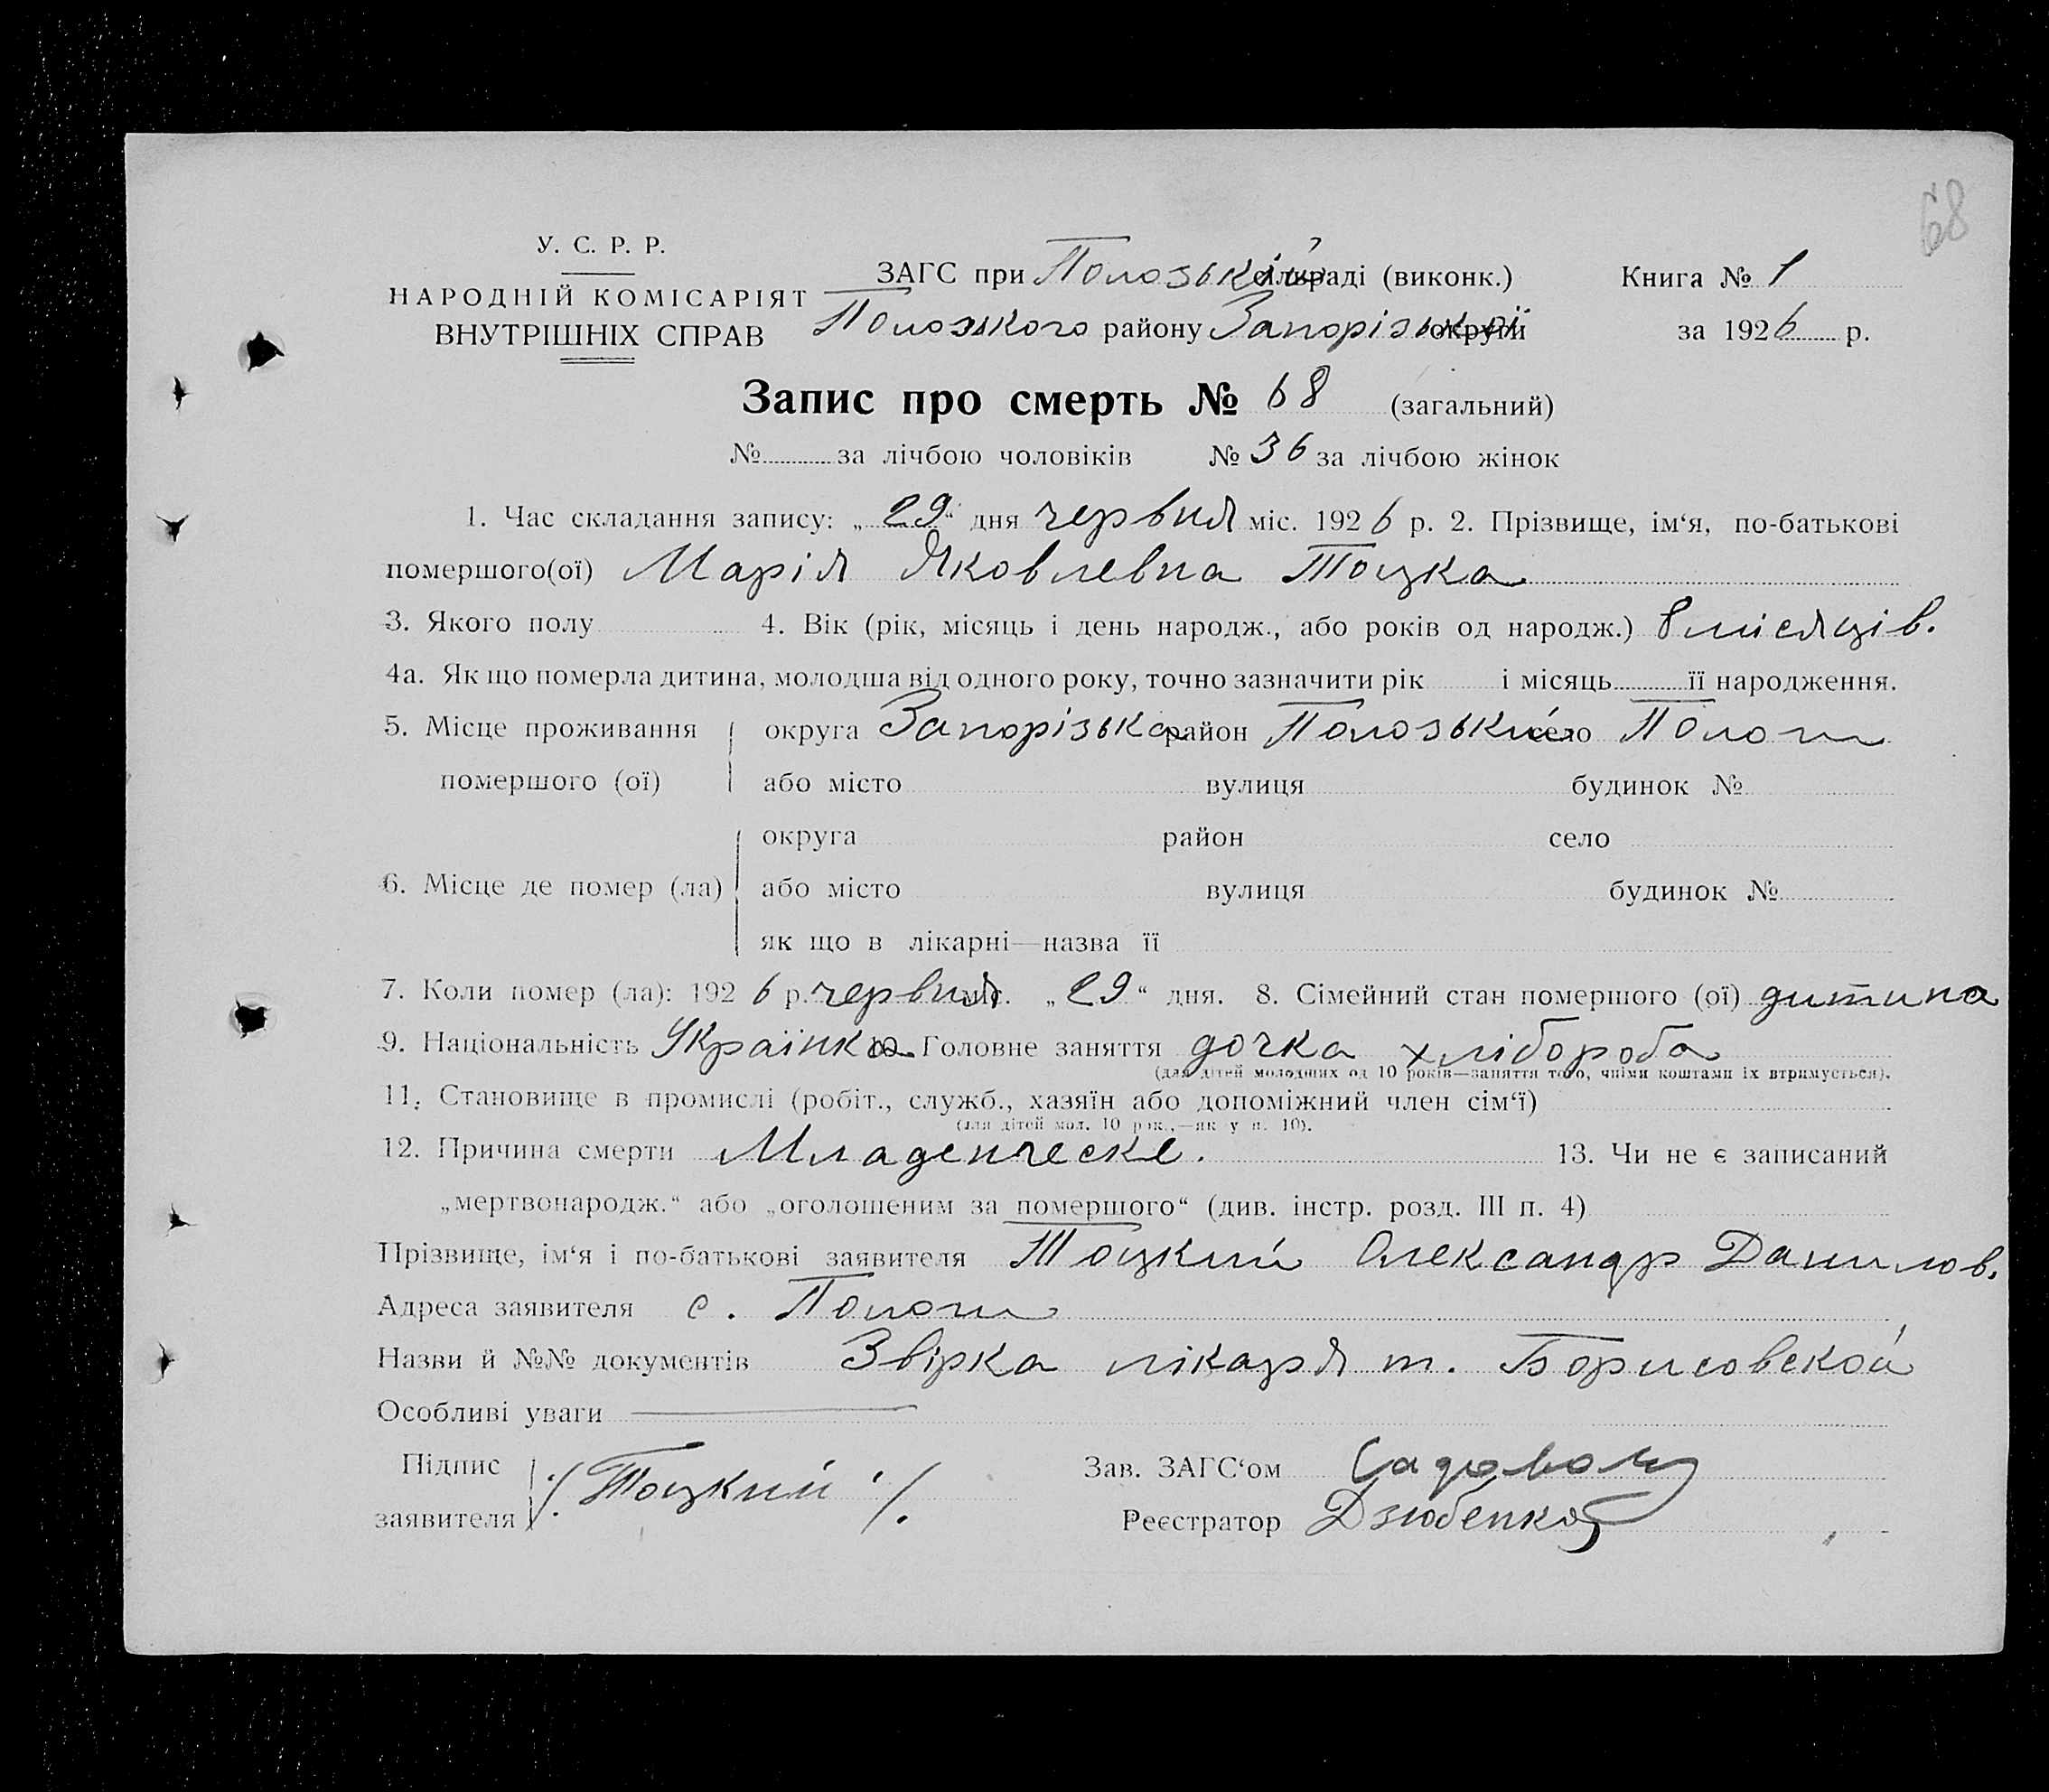 68
У. С. Р. Р.
НАРОДНІЙ КОМІСАРІЯТ
ВНУТРІШНІХ СПРАВ
ЗАГС при Полозькій сільраді (виконк.) Книга № 1
Полозького району Запорізької округи за 1926 р.
Запис про смерть № 68 (загальний)
№ за лічбою чоловіків № 36 за лічбою жінок
1. Час складання запису: „29“ дня червня міс. 1926 р. 2. Прізвище, ім‘я, по-батькові
помершого(ої) Марія Яковлевна Тоцка
3. Якого полу 4. Вік (рік, місяць і день народж., або років од народж.) 8 місяців.
4а. Як що померла дитина, молодша від одного року, точно зазначити рік і місяць її народження.
5. Місце проживання округа Запорізька район Полозький село Пологи
помершого (ої) або місто вулиця будинок №
округа район село
6. Місце де помер (ла) або місто вулиця будинок №
як що в лікарні—назва її
7. Коли помер (ла): 1926 р. червня міс. „29“ дня. 8. Сімейний стан помершого (ої) дитина
9. Національність Українка 10. Головне заняття дочка хлібороба
(для дітей молодших од 10 років—заняття того, чиїми коштами їх втримується).
11. Становище в промислі (робіт., служб., хазяїн або допоміжний член сім‘ї)
(для дітей мол. 10 рок.,—як у п. 10).
12. Причина смерти Младенческе. 13. Чи не є записаний
„мертвонародж.“ або „оголошеним за помершого“ (див. інстр. розд. III п. 4)
Прізвище, ім‘я і по-батькові заявителя Тоцкий Олександр Данилов.
Адреса заявителя с. Пологи
Назви й №№ документів Звірка лікаря т. Борисовской
Особливі уваги
Підпис заявителя /Тоцкий/ Зав. ЗАГС‘ом
Реєстратор Дзюбенко